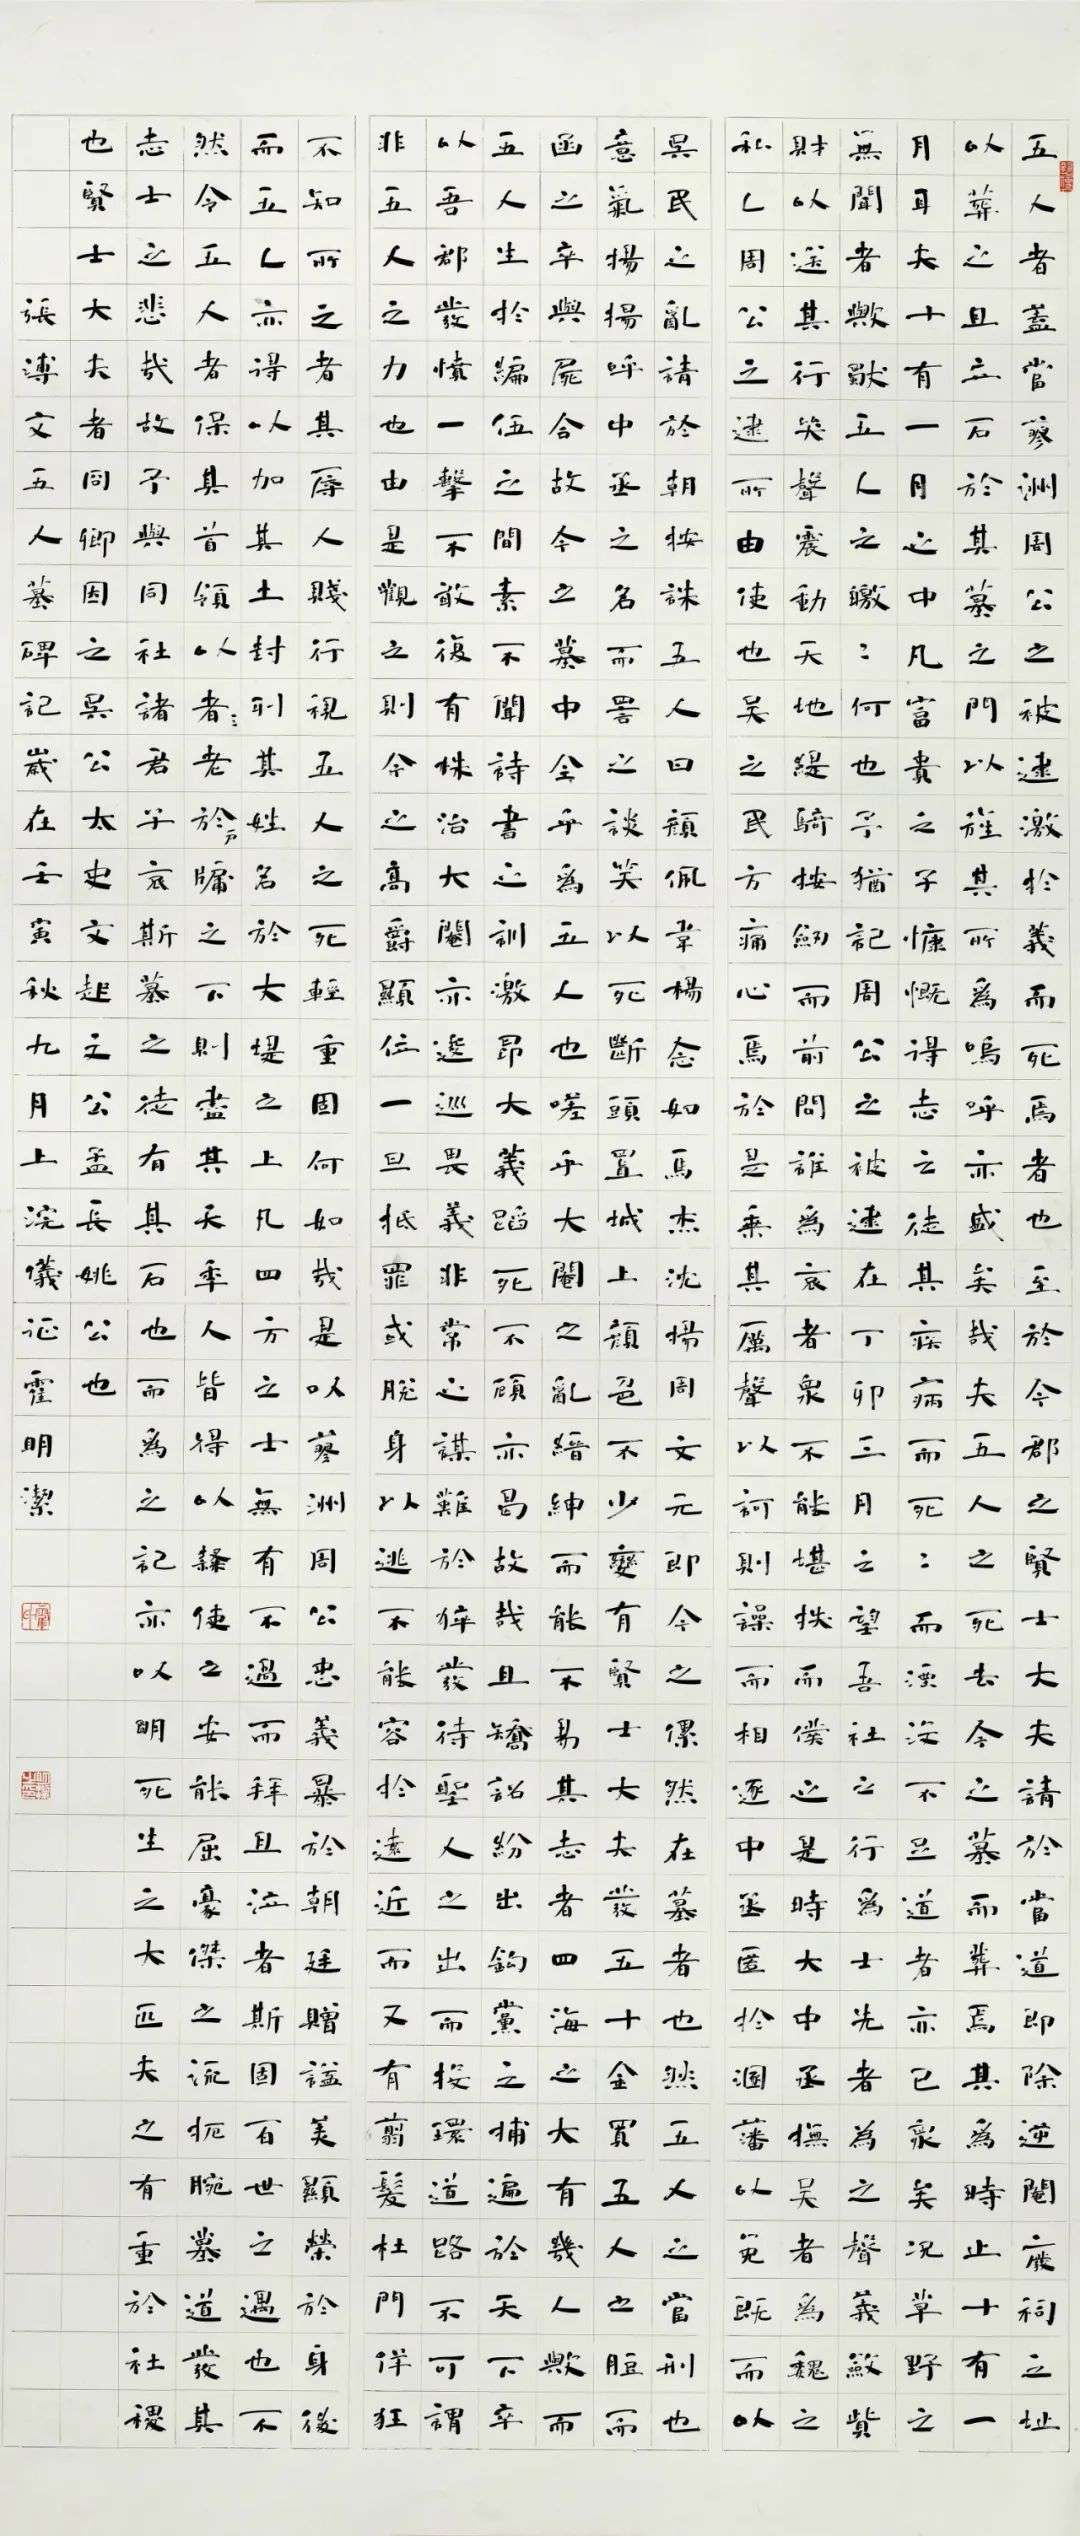 五人者蓋當蓼洲周公之被逮激於義而死焉者也至於今郡之賢士大夫請於當道即除逆閹廢祠之址
以葬之且立石於其墓之門以旌其所爲嗚呼亦盛矣哉夫五人之死去今之墓而葬焉其爲時止十有一
月耳夫十有一月之中凡富貴之子慷慨得志之徒其疾病而死:而湮沒不足道者亦已衆矣況草野之
無聞者歟獸五人之皦:何也予猶記周公之被逮在丁卯三月之:望吾社之行爲士先者為之聲義斂貲
財以送其行哭聲震動天地緹騎按劒而前問誰爲哀者衆不能堪抶而僕之是時大中丞撫吳者爲魏之
私人周公之逮所由使也吳之民方痛心焉於是乘其厲聲以訶則譟而相逐中丞匿於溷藩以免既而以
吳民之亂請於朝按誅五人曰顏佩韋楊念如馬杰沈揚周文元即今之傫然在墓者也然五人之當刑也
意氣揚揚呼中丞之名而詈之談笑以死斷頭置城上顏色不少變有賢士大夫發五十金買五人之脰而
函之卒與屍合故今之墓中全乎爲五人也嗟乎大閹之亂縉紳而能不易其志者四海之大有幾人歟而
五人生於編伍之間素不聞詩書之訓激昂大義蹈死不顧亦曷故哉且矯詔紛出鈎黨之捕遍於天下卒
以吾郡發憤一擊不敢復有株治大閹亦逡巡畏義非常之謀難於猝發待聖人之出而投環道路不可謂
非五人之力也由是觀之則今之高爵顯位一旦抵罪或脫身以逃不能容於遠近而又有翦髮杜門佯狂
不知所之者其辱人賤行視五人之死輕重固何如哉是以蓼洲周公忠義暴於朝廷贈諡美顯榮於身後
而五人亦得以加其土封列其姓名於大堤之上凡四方之士無有不過而拜且泣者斯固百世之遇也不
然令五人者保其首領以者:老於戶牖之下則盡其天年人皆得以隸使之安能屈豪傑之流扼腕墓道發其
志士之悲哉故予與同社諸君子哀斯墓之徒有其石也而爲之記亦以明死生之大匹夫之有重於社稷
也賢士大夫者冏卿因之吳公太史文起文公孟長姚公也
張溥文五人墓碑記歲在壬寅秋九月上浣儀征霍明潔